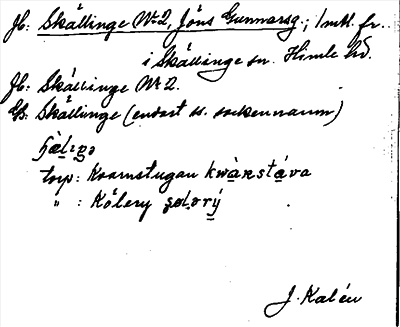 Jb. Skällinge No 2, Jöns Gunnarsg.; 1 mtl. fr.
i Skällinge sn. Himle hd.
Jb. Skällinge No 2.
Gs. Skällinge (endast ss. sockennamn)
torp: Kvarnstugan kwàrstáva
" : Kölery
J. Kalén